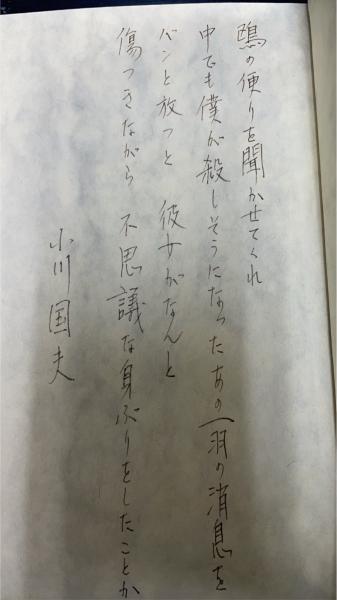 鴎の便りを聞かせてくれ
中でも僕が殺しそうになったあの一羽の消息を
バンと放つと 彼女がなんと
傷つきながら 不思議な身ぶりをしたことか
小川国夫